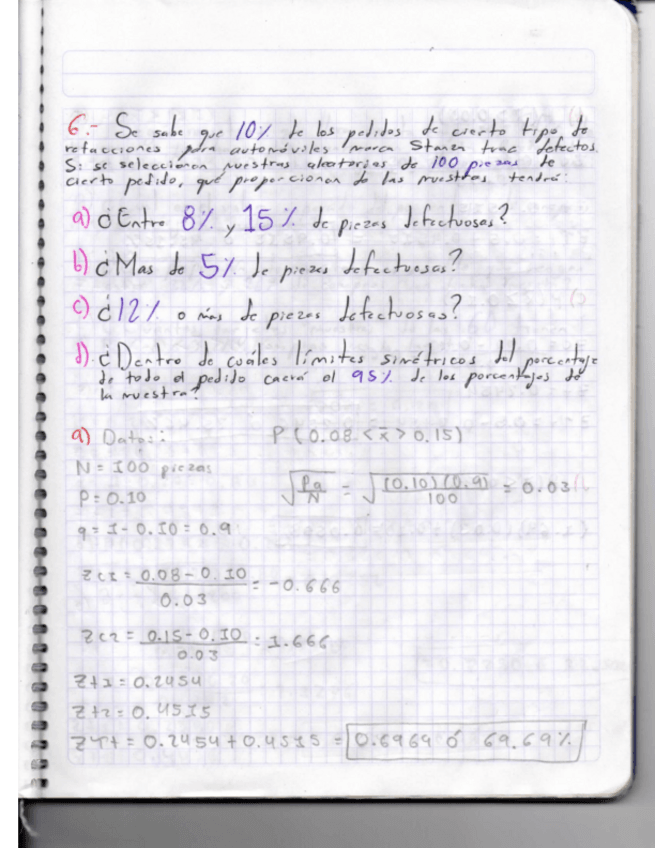 6.- Se sabe que 10% de los pedidos de cierto tipo de
refacciones para automóviles marca Stanza trae defectos.
Si se seleccionan muestras aleatorias de 100 piezas de
cierto pedido, qué proporcionan de las muestras tendrá:
a) ¿Entre 8% y 15% de piezas defectuosas?
b) ¿Mas de 5% de piezas defectuosas?
c) ¿12% o más de piezas defectuosas?
d). ¿Dentro de cuáles límites simétricos del porcentaje
de todo el pedido caerá el 95% de los porcentajes de
la muestra?
a) Datos: P(0.08 < x̄ > 0.15)
N = 100 piezas
√(pq/N) = √((0.10)(0.9)/100) = 0.03
P = 0.10
q = 1 - 0.10 = 0.9
Zc1 = (0.08 - 0.10)/0.03 = -0.666
Zc2 = (0.15 - 0.10)/0.03 = 1.666
Zt1 = 0.2454
Zt2 = 0.4515
ZTt = 0.2454 + 0.4515 = 0.6969 ó 69.69%